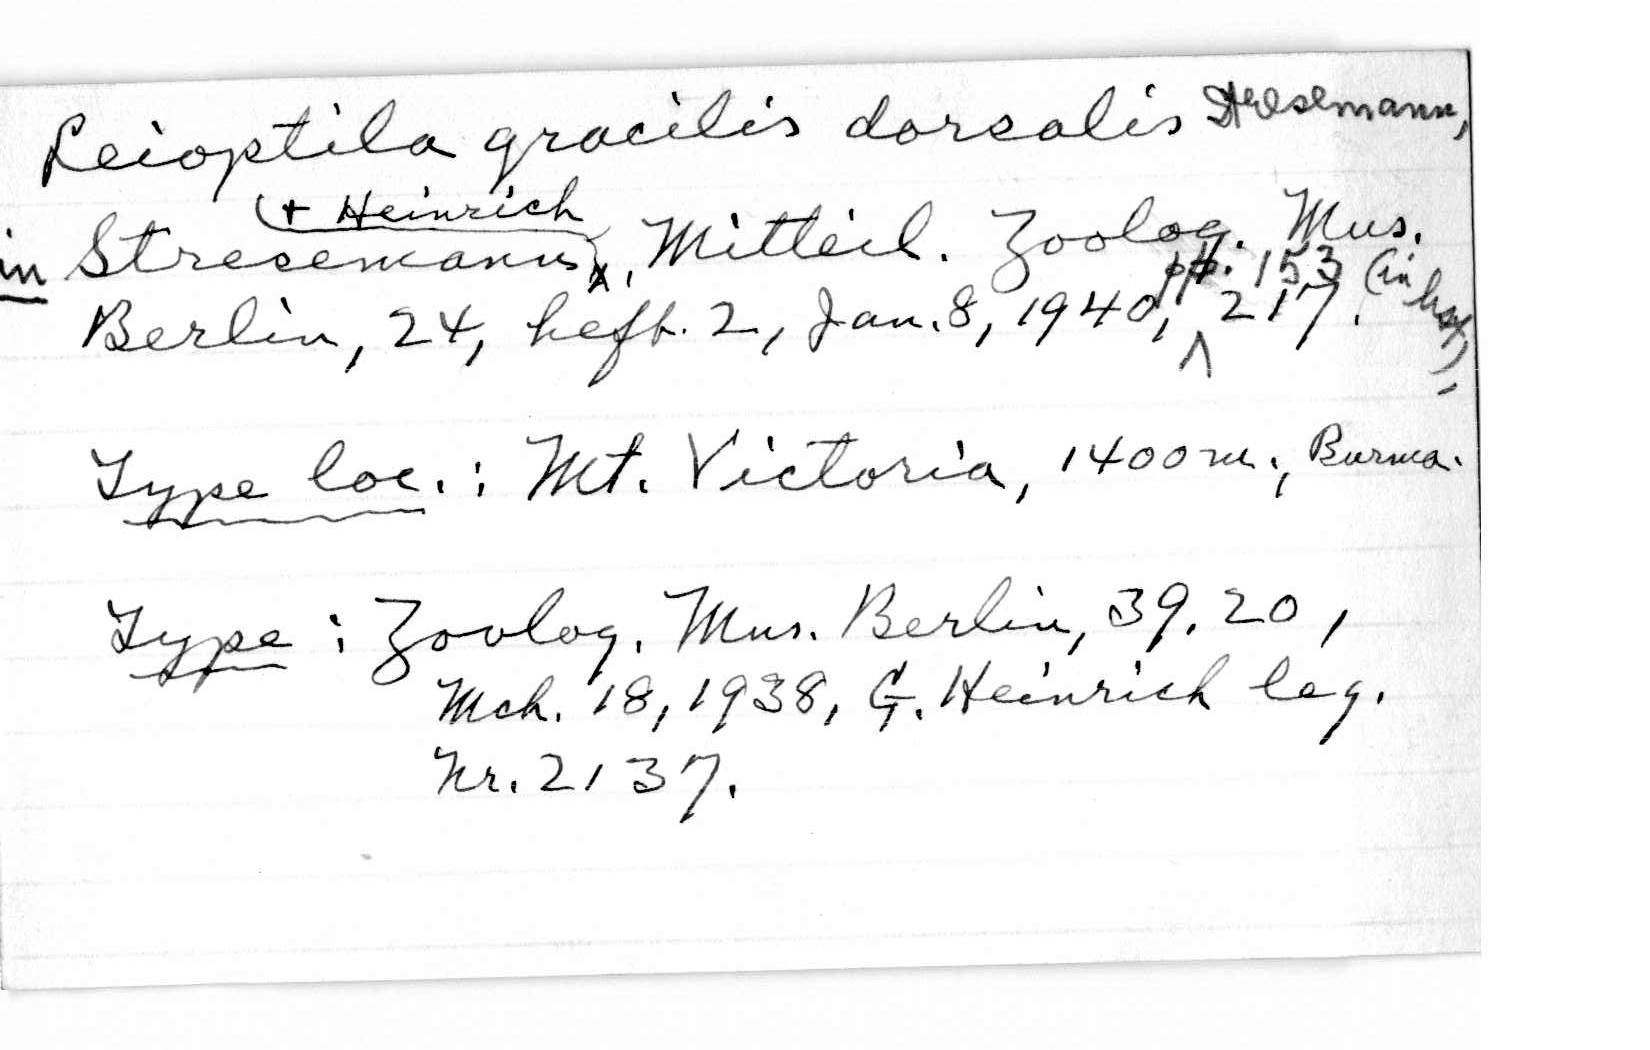 Leioptila gracilis dorsalis Stresemann,
in Stresemann (+ Heinrich), Mitteil. Zoolog. Mus.
Berlin, 24, heft. 2, Jan. 8, 1940, pp. 153 (in key), 217.
Type loc. : Mt. Victoria, 1400 m., Burma.
Type : Zoolog. Mus. Berlin, 39.20,
Mch. 18, 1938, G. Heinrich leg.
Nr. 2137.